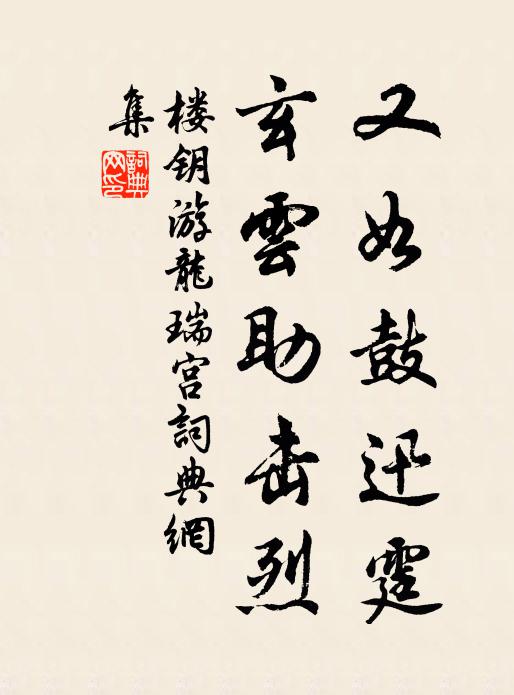 又如鼓迅霆
玄雲助击烈
楼钥游龍瑞宫詞典網
集
詞典
网印